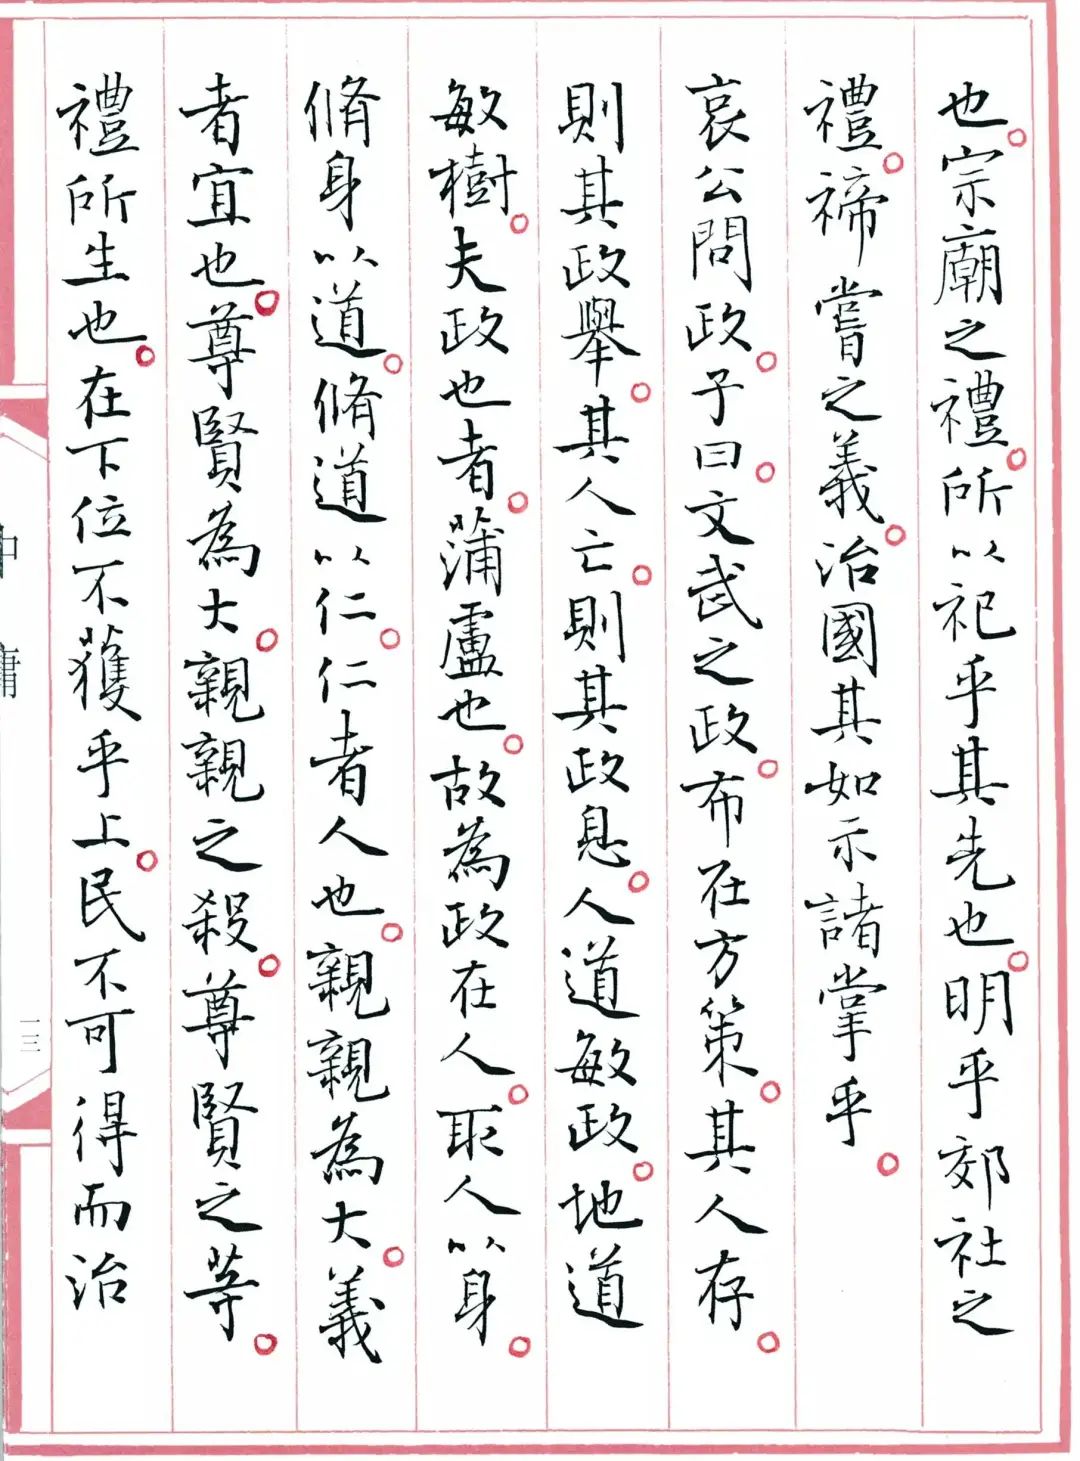 也。宗廟之禮。所以祀乎其先也。明乎郊社之
禮。禘嘗之義。治國其如示諸掌乎。
哀公問政。子曰。文武之政。布在方策。其人存。
則其政舉。其人亡。則其政息。人道敏政。地道
敏樹。夫政也者。蒲盧也。故為政在人。取人以身。
脩身以道。脩道以仁。仁者人也。親親為大。義
者宜也。尊賢為大。親親之殺。尊賢之等。
禮所生也。在下位不獲乎上。民不可得而治
中庸
一三